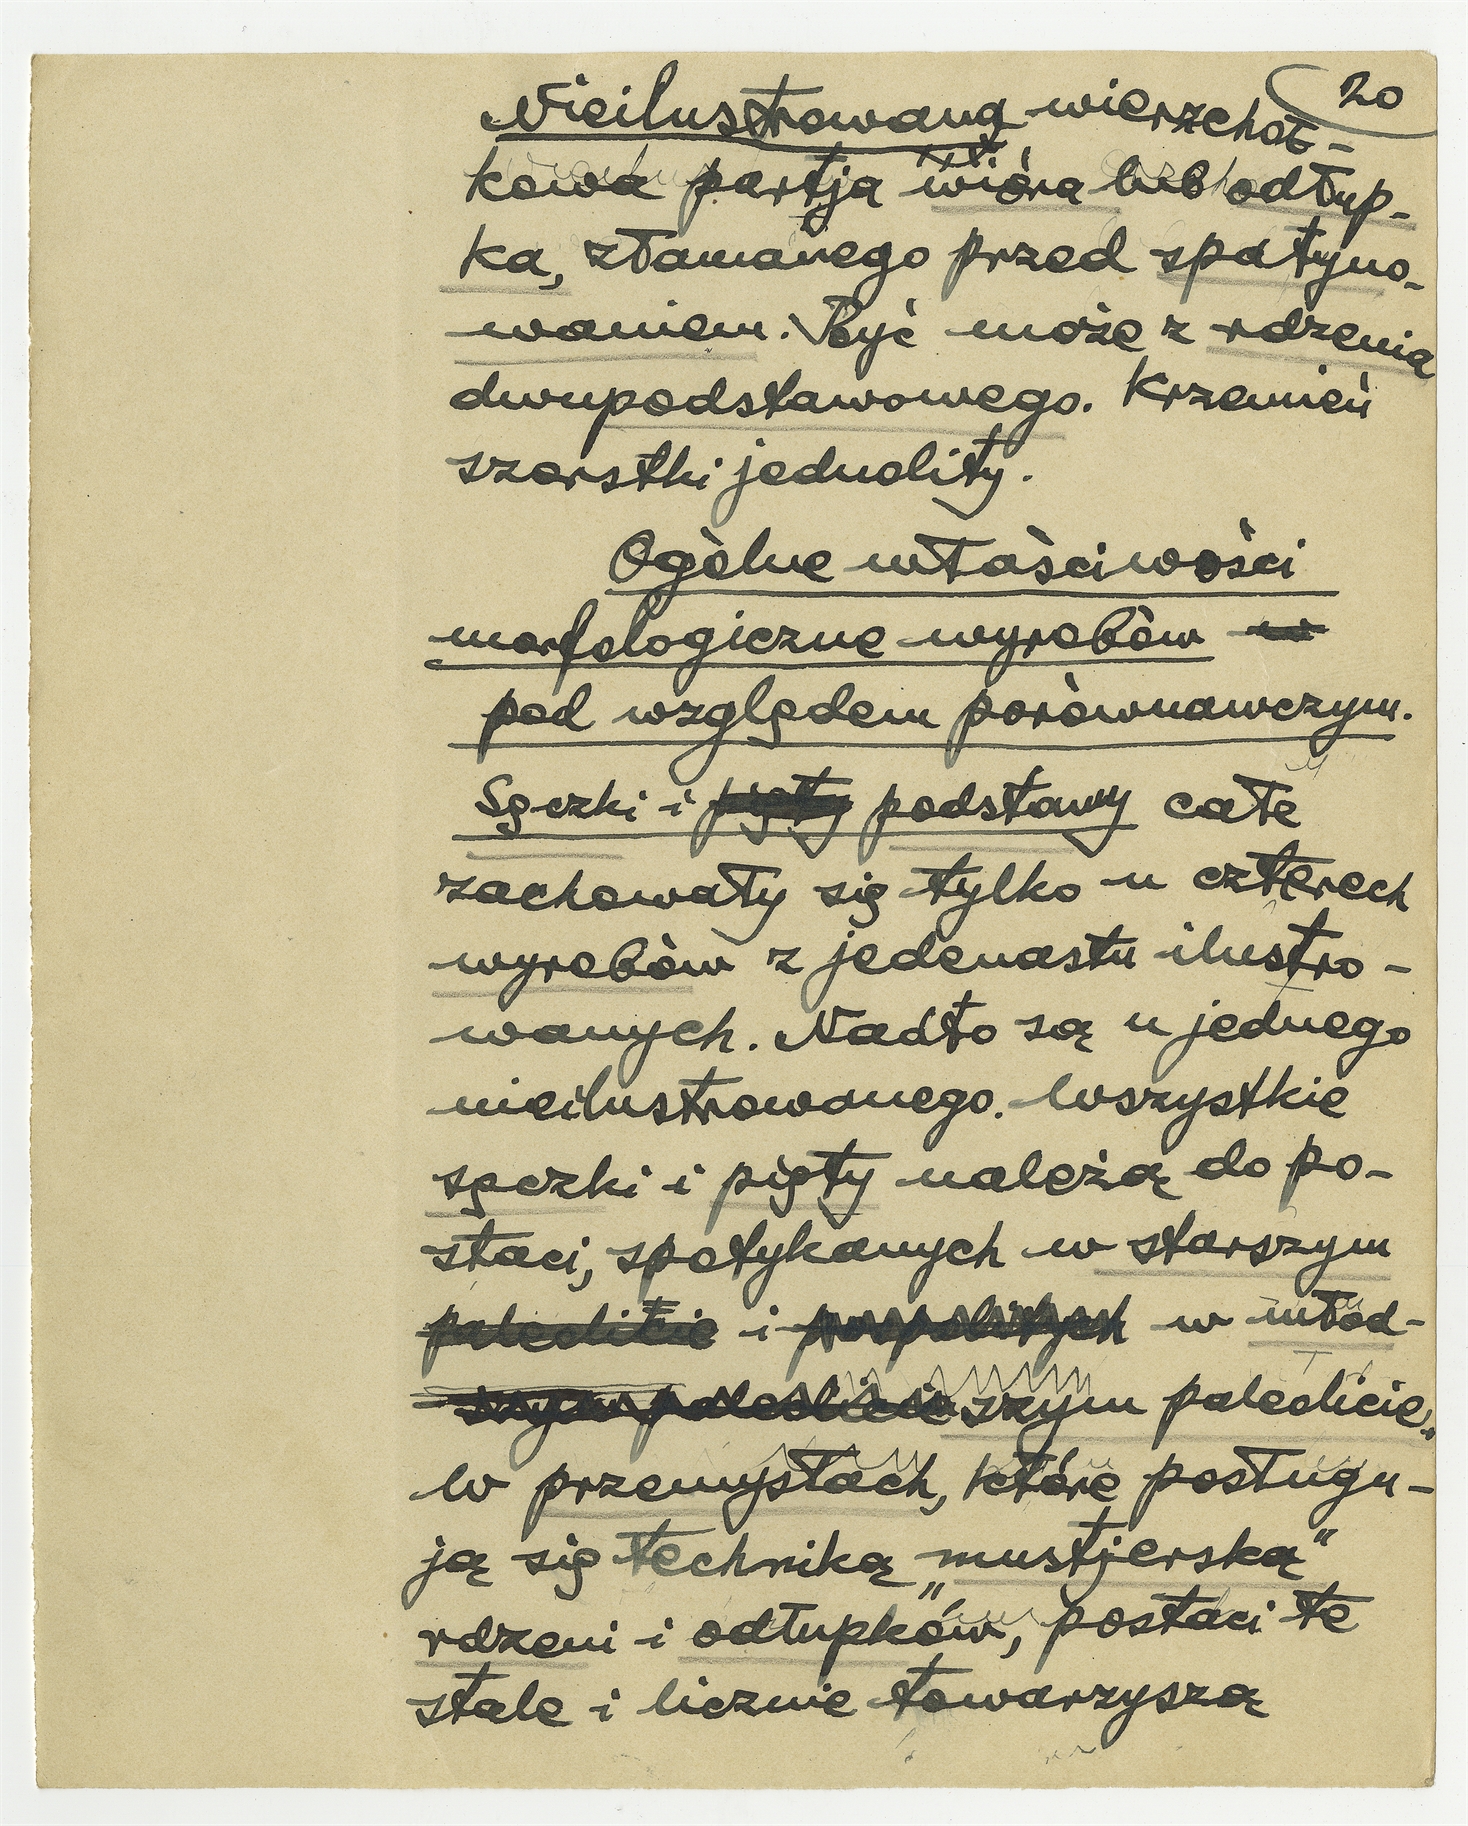 20
Nieilustrowana wierzchoł-
kowa partja wióra lub odłup-
ka, złamanego przed spatyno-
waniem. Być może z rdzenia
dwupodstawowego. Krzemień
szorstki jednolity.
Ogólne właściwości
morfologiczne wyrobów w
pod względem porównawczym.
Sęczki i pięty podstawy całe
zachowały się tylko u czterech
wyrobów z jedenastu ilustro-
wanych. Nadto są u jednego
nieilustrowanego. Wszystkie
sęczki i pięty należą do po-
staci, spotykanych w starszym
paleolicie i pospolitych w młod-
szym paleolicie szym paleolicie.
W przemysłach, które posługu-
ją się techniką „mustjerską"
rdzeni i odłupków, postaci te
stale i licznie towarzyszą